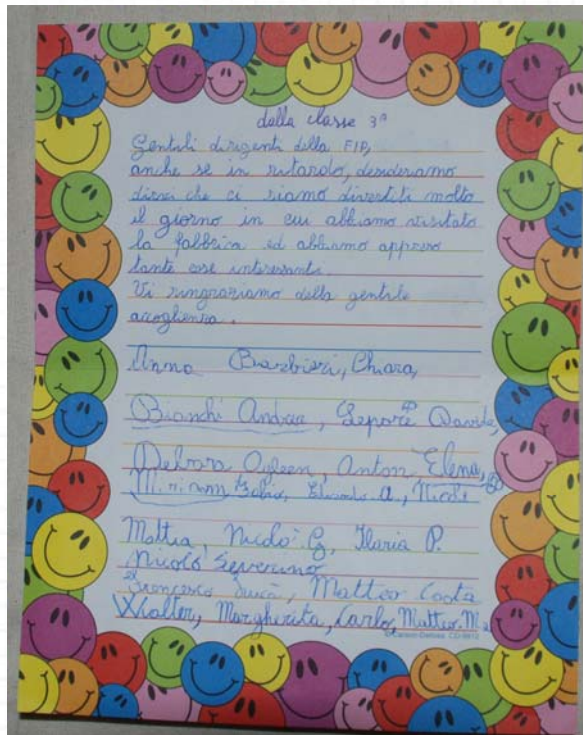 dalla classe 3ª
Gentili dirigenti della FIP,
anche se in ritardo, desideriamo
dirvi che ci siamo divertiti molto
il giorno in cui abbiamo visitato
la fabbrica ed abbiamo appreso
tante cose interessanti.
Vi ringraziamo della gentile
accoglienza.
Anna Barbieri, Chiara,
Bianchi Andrea, Lepore Davide,
Debora, Anton, Elena,
Miriam, Edoardo A., Nicole
Mattia, Nicolò G, Ilaria P.
Nicolò Severino
Francesco, Matteo Costa
Walter, Margherita, Carlo, Matteo M.